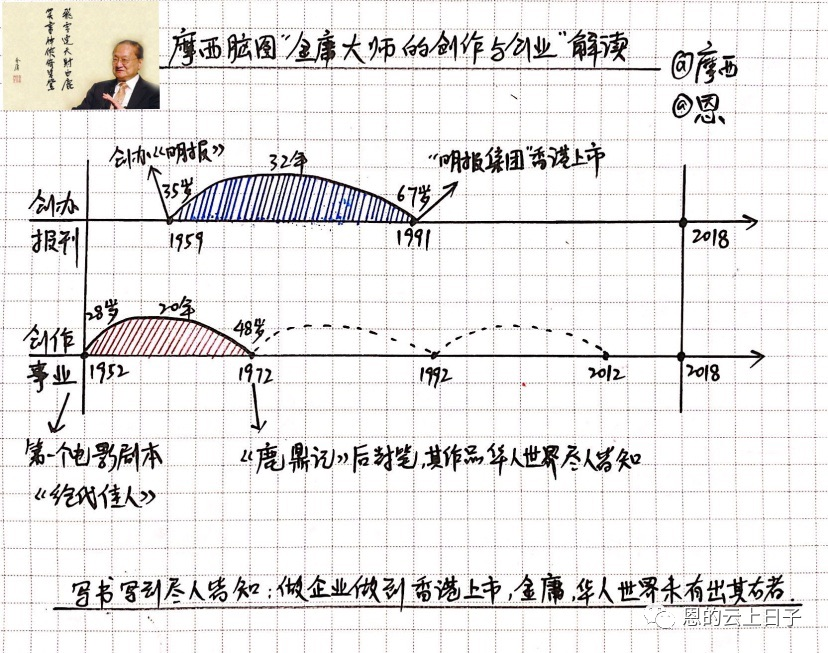 飞雪连天射白鹿
笑书神侠倚碧鸳
金庸
摩西脑图“金庸大师的创作与创业”解读
@摩西
@恩
创办《明报》
32年
“明报集团”香港上市
35岁
67岁
创办
报刊
1959
1991
2018
28岁
20年
48岁
创作
事业
1952
1972
1992
2012
2018
第一个电影剧本
《绝代佳人》
《鹿鼎记》后封笔,其作品华人世界尽人皆知
写书写到尽人皆知;做企业做到香港上市,金庸,华人世界未有出其右者.
恩的云上日子